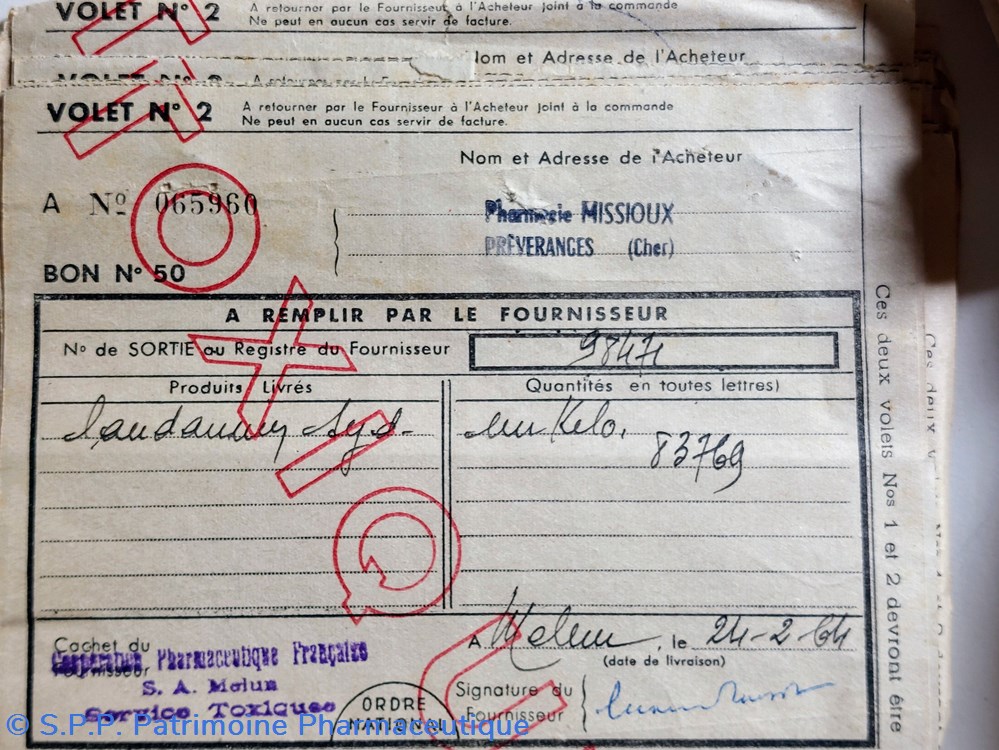 VOLET N° 2 A retourner par le Fournisseur à l'Acheteur joint à la commande
Ne peut en aucun cas servir de facture.
Nom et Adresse de l'Acheteur
VOLET N° 2 A retourner par le Fournisseur
VOLET N° 2 A retourner par le Fournisseur à l'Acheteur joint à la commande
Ne peut en aucun cas servir de facture.
Nom et Adresse de l'Acheteur
A Nº 065960
Pharmacie MISSIOUX
PRÉVERANGES (Cher)
BON N° 50
A REMPLIR PAR LE FOURNISSEUR
N° de SORTIE au Registre du Fournisseur 98471
Produits Livrés Quantités en toutes lettres)
Laudanum Syd. un Kelo.
83769
TOXIQU
Cachet du
Fournisseur
Coopération Pharmaceutique Française
S. A. Melun
Service Toxiques
A Melun, le 24-2-64
(date de livraison)
ORDRE
NATIONAL
Signature du
Fournisseur
Ces deux volets Nos 1 et 2 devront être
Ces deux v
© S.P.P. Patrimoine Pharmaceutique